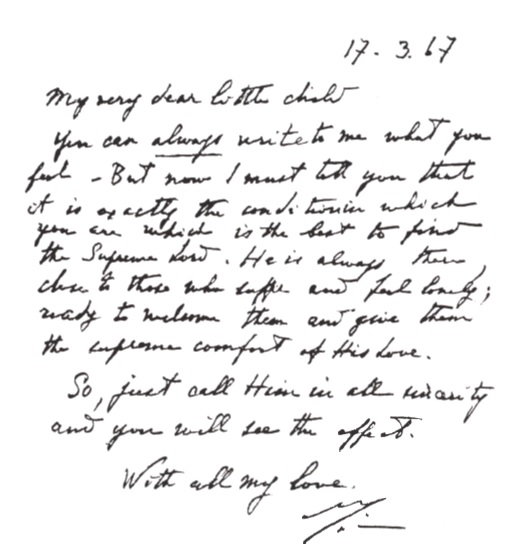 17. 3. 67
My very dear little child
You can always write to me what you
feel - But now I must tell you that
it is exactly the condition in which
you are which is the best to find
the Supreme Lord. He is always there,
close to those who suffer and feel lonely;
ready to welcome them and give them
the supreme comfort of His Love.
So, just call Him in all sincerity
and you will see the effect.
With all my love.